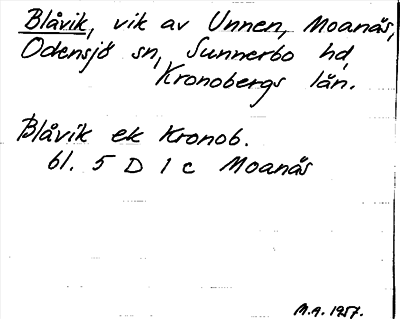 Blåvik, vik av Unnen, Moanäs,
Odensjö sn, Sunnerbo hd,
Kronobergs län.
Blåvik ek Kronob.
bl. 5 D 1 c Moanäs
M.A. 1957.